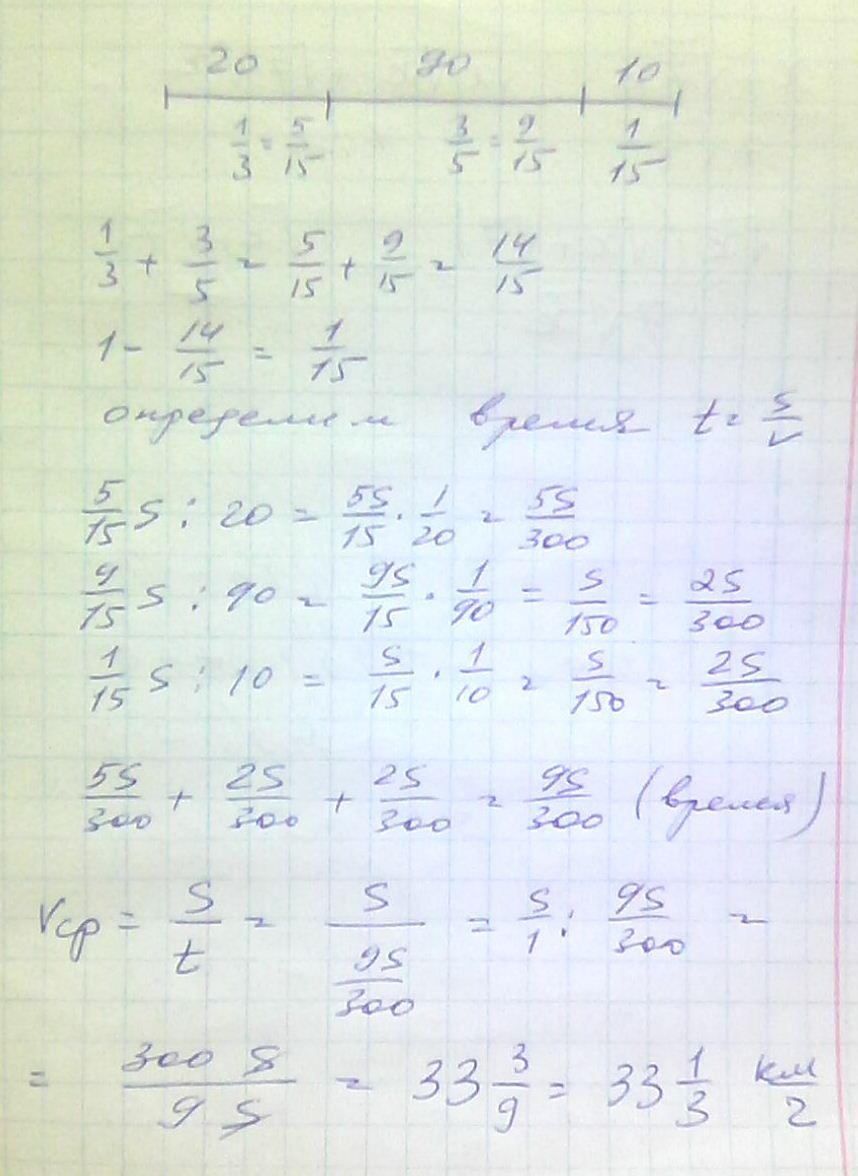 20 90 10
1/3 = 5/15 3/5 = 9/15 1/15
1/3 + 3/5 = 5/15 + 9/15 = 14/15
1 - 14/15 = 1/15
определим время t = S/v
5/15 S : 20 = 5S/15 · 1/20 = 5S/300
9/15 S : 90 = 9S/15 · 1/90 = S/150 = 2S/300
1/15 S : 10 = S/15 · 1/10 = S/150 = 2S/300
5S/300 + 2S/300 + 2S/300 = 9S/300 (время)
Vср = S/t = S/(9S/300) = S/1 : 9S/300 =
= 300 S/9 S = 33 3/9 = 33 1/3 км/ч